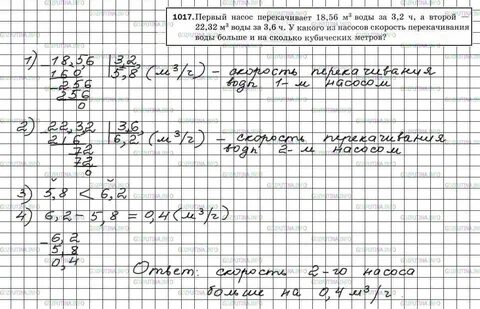 1017. Первый насос перекачивает 18,56 м³ воды за 3,2 ч, а второй —
22,32 м³ воды за 3,6 ч. У какого из насосов скорость перекачивания
воды больше и на сколько кубических метров?
1) - 18,56 | 3,2
160 5,8 (м³/г) - скорость перекачивания
- 256 воды 1-м насосом
256
0
2) - 22,32 | 3,6
216 6,2 (м³/г) - скорость перекачивания
- 72 воды 2-м насосом
72
0
3) 5,8 < 6,2
4) 6,2 - 5,8 = 0,4 (м³/г)
- 6,2
5,8
0,4
Ответ: скорость 2-го насоса
больше на 0,4 м³/г.